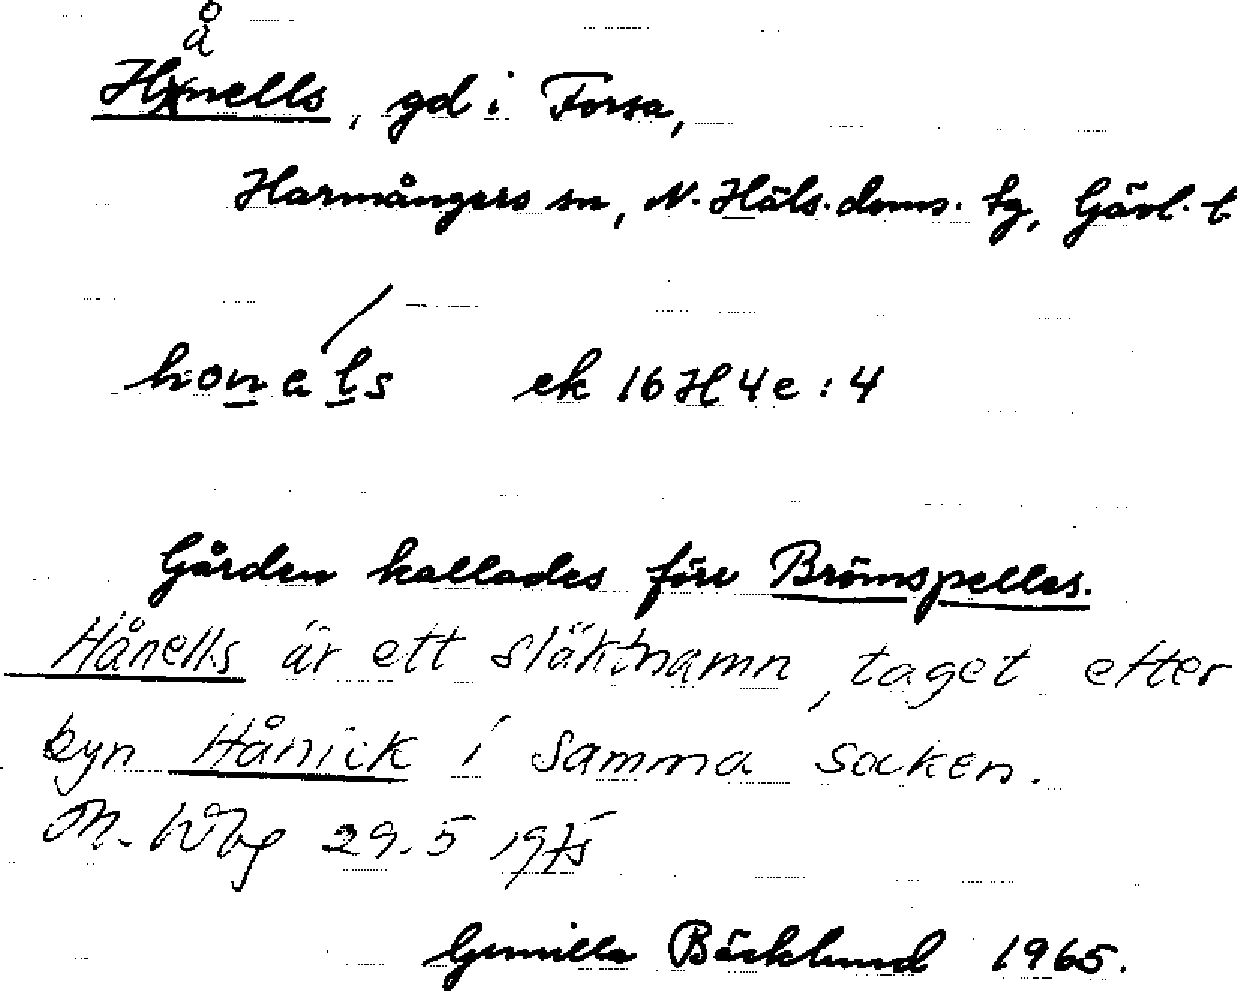 å
Hånells, gd i Forsa,
Harmångers sn, N. Häls. doms. tg, Gävl. l
honals ek 16 H 4 e : 4
Gården kallades förr Brömspelles.
Hånells är ett släktnamn, taget efter
byn Hånick i samma socken.
29.5 1975
Gunilla Bäcklund 1965.